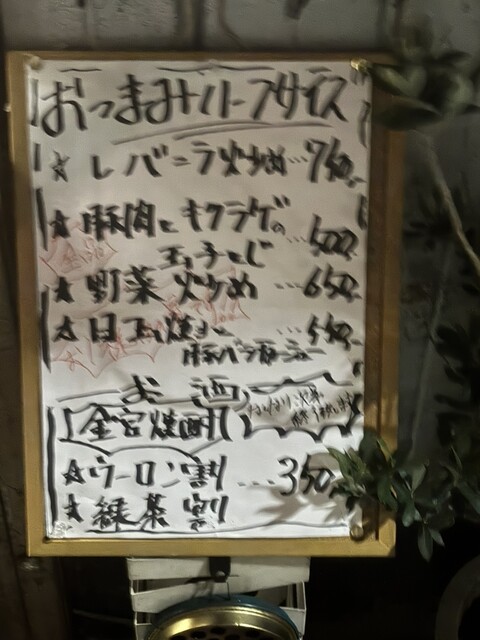 おつまみハーフサイズ
★ レバニラ炒め…750
★ 豚肉とキクラゲの
玉子とじ …500
★ 野菜炒め …650
★ 目玉焼き …550
豚バラ
お酒
金宮焼酎
★ ウーロン割 …350
★ 緑茶割